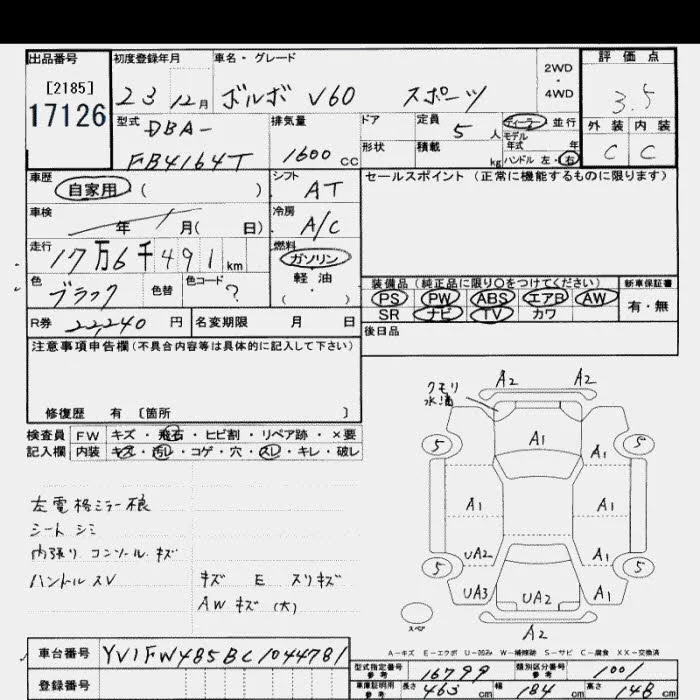 出品番号 初度登録年月 車名・グレード 2WD ・ 4WD 評価点
[2185] 17126 23 12月 ボルボ V60 スポーツ 3.5
型式 DBA- FB4164T 排気量 1600 CC ドア 定員 5人 ディーラー 並行 外装 内装
形状 積載 kg モデル年式 年 ハンドル 左・右 C C
車歴 自家用 ( ) シフト AT セールスポイント (正常に機能するものに限ります)
車検 年 月( 日) 冷房 A/C
走行 17万6千491 km 燃料 ガソリン 軽油 ( ・ )
色 ブラック 色替 色コード ? 装備品 (純正品に限り○をつけてください) 新車保証書
PS PW ABS エアB AW 有・無
SR ナビ TV カワ
R券 22,240 円 名変期限 月 日 後日品
注意事項申告欄 (不具合内容等は具体的に記入して下さい)
修復歴 有 〔箇所 〕
検査員 FW キズ・飛石・ヒビ割・リペア跡・×要
記入欄 内装 キズ・汚レ・コゲ・穴・スレ・キレ・破レ
クモリ A2 A2
水滴
5 A1 5
A1 A1
UA2 A1
5 5
UA3 UA2 A1
スペア A2
左電格ミラー
シート シミ
内張り コンソール キズ
ハンドル スレ キズ E スリキズ
AW キズ (大)
A-キズ E-エクボ U-凹み W-補修跡 S-サビ C-腐食 XX-交換済
車台番号 YV1FW485BC1044781 型式指定番号 参考 16799 類別区分番号 参考 1001
登録番号 車庫証明用 参考 長さ 463 cm 幅 184 cm 高さ 148 cm